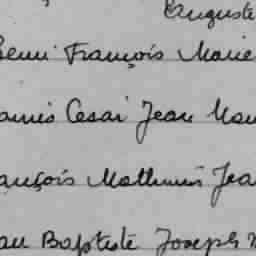 Auguste
Henri François Marie
Cesar Jean
François Mathurin Jea
Baptiste Joseph